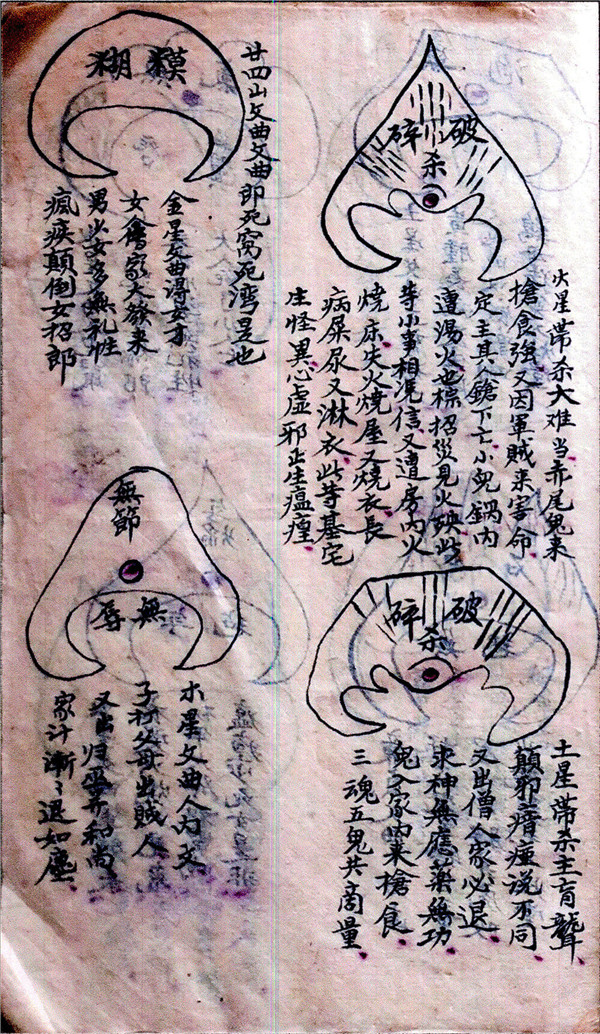 破碎
杀
火星帶杀大难当赤尾鬼来
搶食強又因軍賊来害命
定主其人鎗下亡小兒鍋内
遭湯火也棕招災見火殃些
等小事相混信又遭房内火
燒床失火燒屋又燒衣長
病屎尿又淋衣此等基宅
怪異心虛邪正生瘟瘴
破碎
杀
土星帶杀主盲聾
顛邪瘖痖说不同
又出僧人家必退
求神無應藥無功
鬼入家内来槍食
三魂五鬼共商量
糢糊
廿四山文曲文曲即死窩死湾是也
金星文曲浔女才
女會家大發来
男少女多無礼性
瘋疾顛倒女招郎
無節
無辱
木星文曲人内文
子父母出賊人
又出归巫并和尚
家计漸々退如塵